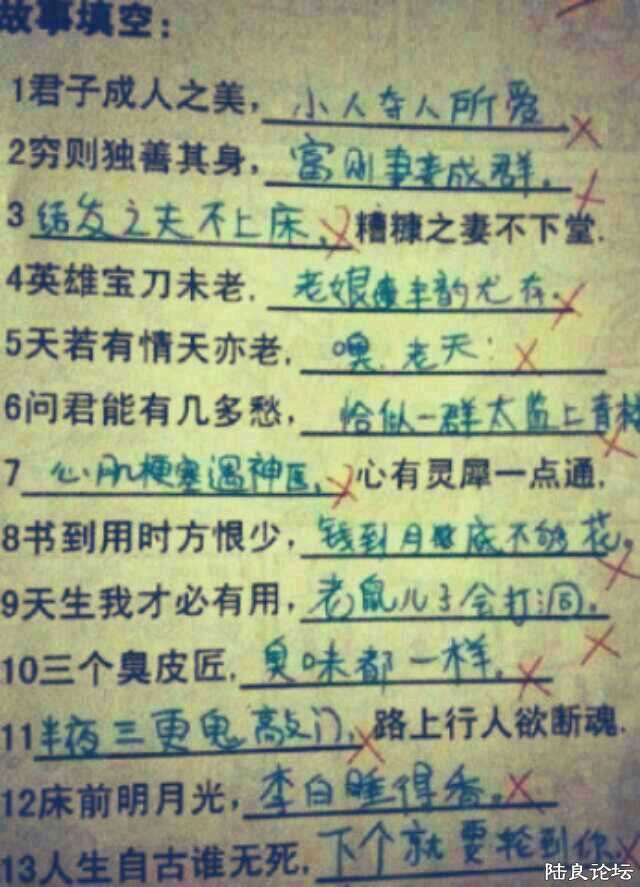 故事填空：
1君子成人之美，小人夺人所爱
2穷则独善其身，富则妻妾成群。
3结发之夫不上床，糟糠之妻不下堂.
4英雄宝刀未老，老娘丰韵尤存.
5天若有情天亦老，噢，老天：
6问君能有几多愁，恰似一群太监上青楼
7心肌梗塞遇神医，心有灵犀一点通.
8书到用时方恨少，钱到月底不够花。
9天生我才必有用，老鼠儿子会打洞。
10三个臭皮匠，臭味都一样。
11半夜三更鬼敲门，路上行人欲断魂.
12床前明月光，李白睡得香。
13人生自古谁无死，下个就要轮到你
陆良论坛